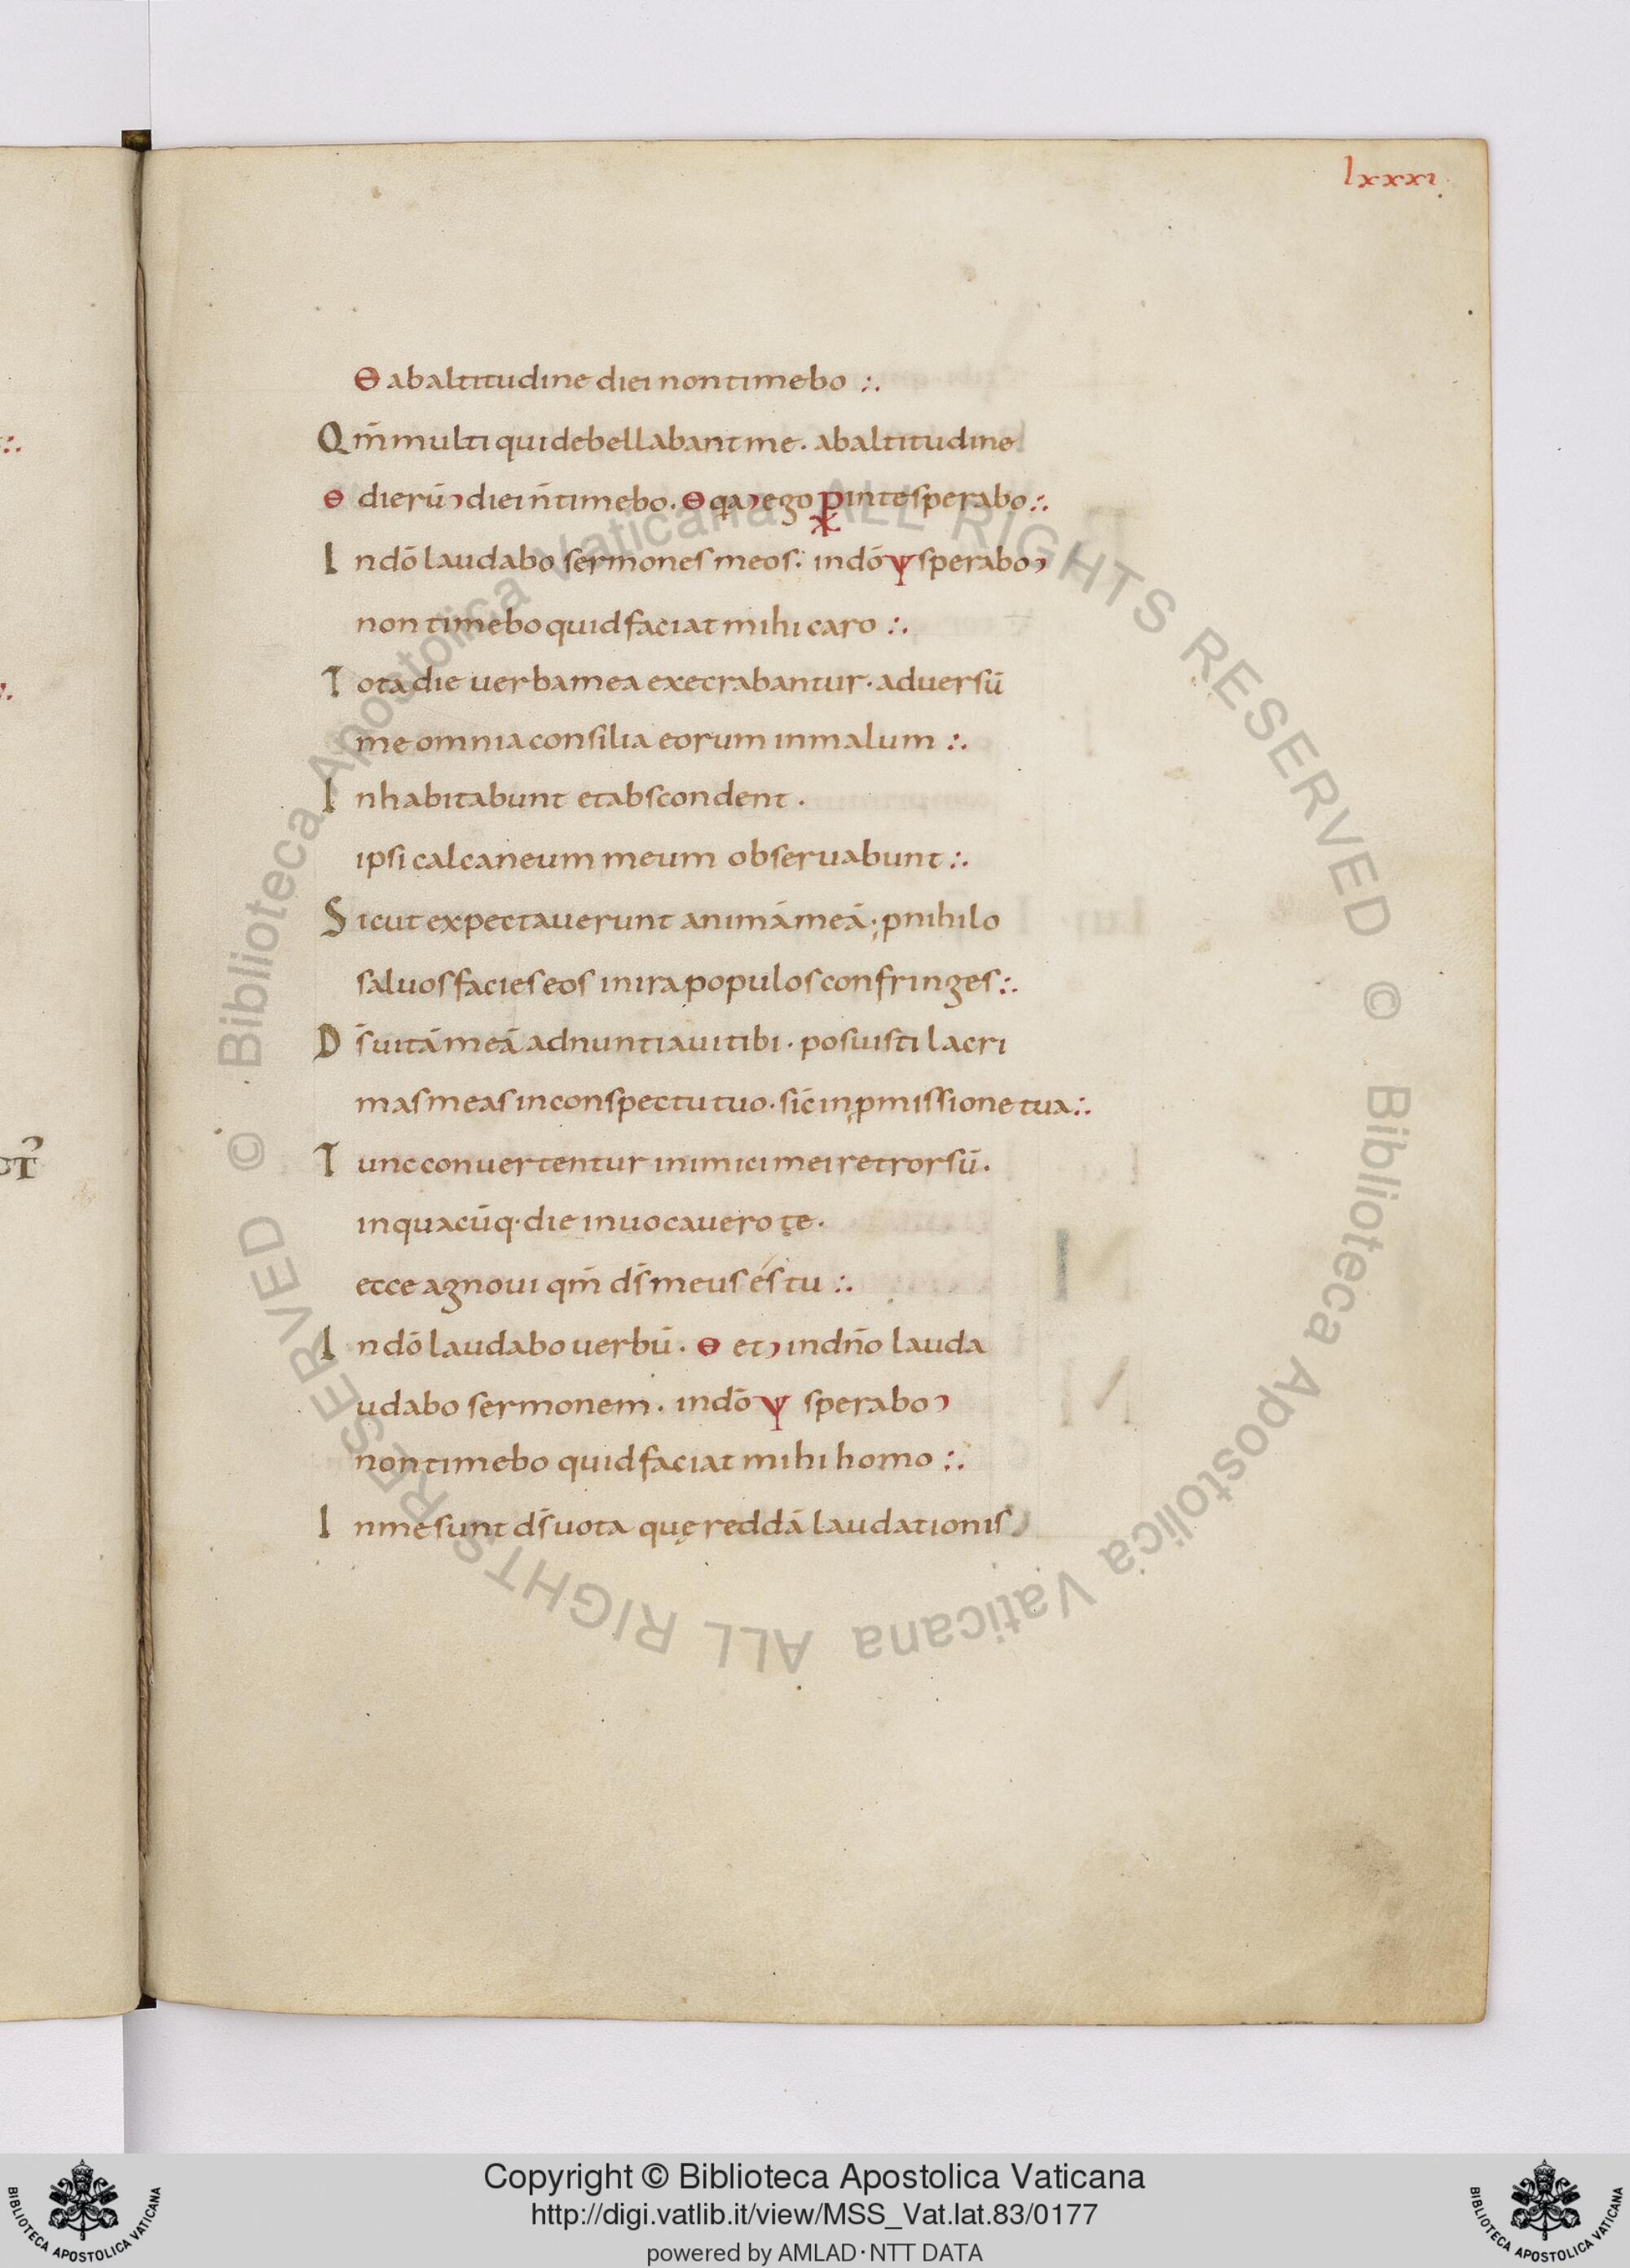 lxxxi
Θ ab altitudine diei non timebo :.
Qm̄ multi qui debellabant me. ab altitudine
Θ dierū diei n̄ timebo. Θ qa ego in te sperabo :.
In dō laudabo sermones meos. in dō ψ sperabo
non timebo quid faciat mihi caro :.
Tota die uerba mea execrabantur. aduersū
me omnia consilia eorum in malum :.
Inhabitabunt et abscondent.
ipsi calcaneum meum obseruabunt :.
Sicut expectauerunt animā meā; p nihilo
saluos facies eos in ira populos confringes :.
Ds̄ uitā meā adnuntiaui tibi. posuisti lacri
mas meas in conspectu tuo. sic̄ in pmissione tua :.
Tunc conuertentur inimici mei retrorsū.
in quacūq. die inuocauero te.
ecce agnoui qm̄ ds̄ meus es tu :.
In dō laudabo uerbū. Θ et in dn̄o lauda
udabo sermonem. in dō ψ sperabo
non timebo quid faciat mihi homo :.
In me sunt ds̄ uota quę reddā laudationis
© Biblioteca Apostolica Vaticana ALL RIGHTS RESERVED © Biblioteca Apostolica Vaticana ALL RIGHTS RESERVED
Copyright © Biblioteca Apostolica Vaticana
http://digi.vatlib.it/view/MSS_Vat.lat.83/0177
powered by AMLAD·NTT DATA
BIBLIOTECA APOSTOLICA VATICANA
BIBLIOTECA APOSTOLICA VATICANA